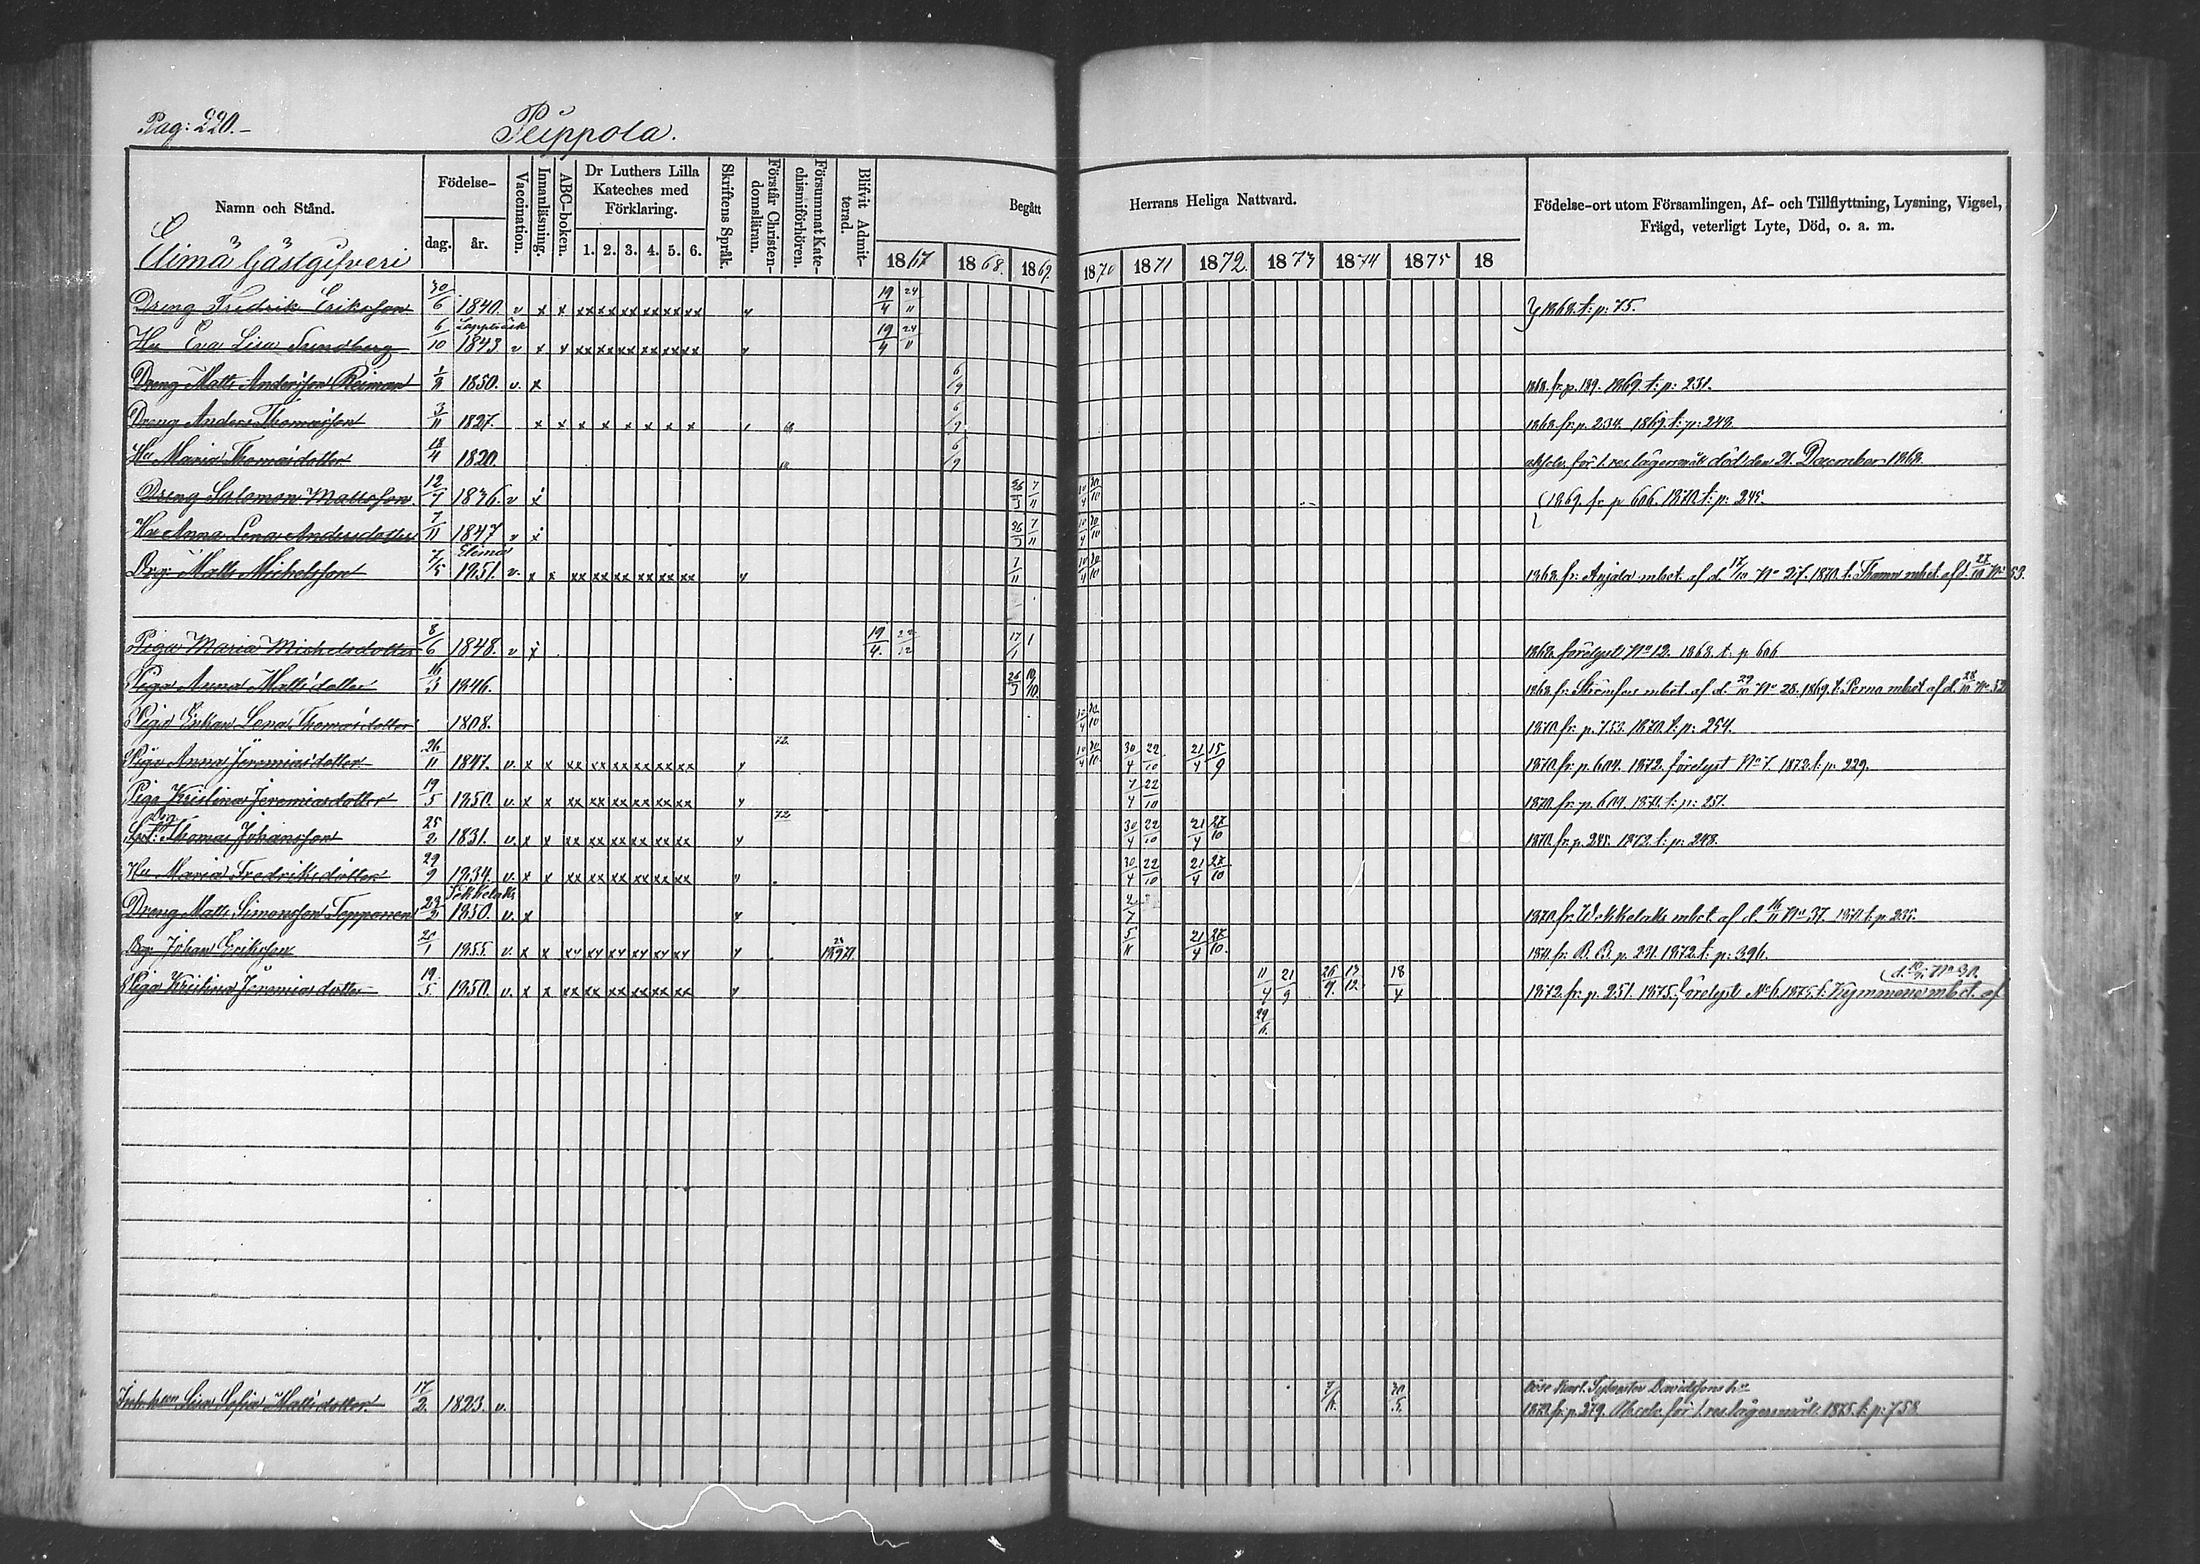 Pag: 220.
Peippola.
Namn och Stånd.
Födelse-
dag. år.
Vaccination.
Innanläsning.
ABC-boken.
Dr Luthers Lilla Kateches med Förklaring.
1. 2. 3. 4. 5. 6.
Skriftens Språk.
Förstår Christendomsläran.
Försummat Katechismiförhören.
Blifvit Admitterad.
Begått Herrans Heliga Nattvard.
1867 1868. 1869. 1870 1871 1872. 1873 1874 1875 18
Födelse-ort utom Församlingen, Af- och Tillflyttning, Lysning, Vigsel,
Frägd, veterligt Lyte, Död, o. a. m.
Elimä Gästgifveri
Dreng Fredrik Eriksson 30/6 1840. v x x xx xx xx xx xx xx 19/4 24/11 1868. t: p: 75.
Hu Eva Lisa Sundberg 6/10 1843. v x x xx xx xx xx xx xx 19/4 24/11
Dreng Matts Andersson Reiman 1850. v. x 6/9 1868. fr. p. 189. 1869. t: p: 231.
Dreng Anders Thomasson 3/11 1827. x x x x x x x x 6/9 1868. fr. p. 234. 1869. t: p: 248.
Hu Maria Thomasdotter 18/4 1820. 6/9 absolv. för 1. res lägersmål död den 21 December 1868.
Dreng Salomon Mattsson 12/7 1836. v x 7/11 10/4 30/10 1869. fr. p. 606. 1870. t: p: 245.
Hu Anna Lena Andersdotter 7/11 1847 v x 7/11 10/4 30/10
Elimä
Drg: Matts Michelsson 7/5 1851. v. x x xx xx xx xx xx xx 7/11 10/4 30/10 1868. fr. Anjala mbet. af d. 17/10 No 27. 1870. t. Thama mbet. af d. 27/10 No 53.
Piga Maria Michelsdotter 8/6 1848. v x 19/4. 17/1 1868 förelyst No 12. 1868. t: p 606
Piga Anna Mattsdotter 16/3 1846. 1868. fr. Strömfors mbet. af d. 29/10 No 28. 1869. t: Perno mbet af d. 28/10 No 52
Piga Enkan Lena Thomasdotter 1808. 1870. fr. p. 753. 1870. t: p: 254.
Piga Anna Jeremiasdotter 26/11 1847. v. x x xx xx xx xx xx xx 72. 10/4 30/10 30/4 22/10 21/4 15/9 1870. fr. p. 604. 1872. förelyst No 7. 1872. t: p: 229.
Piga Kristina Jeremiasdotter 19/5 1850. v. x x xx xx xx xx xx xx 22/10 1870. fr. p. 604. 1871. t: p: 251.
Thomas Johansson 25/2 1831. v. x x xx xx xx xx xx xx 72. 30/4 22/10 21/4 27/10 1870. fr. p. 245. 1872. t: p: 248.
Hu Maria Fredriksdotter 29/9 1834. v. x x xx xx xx xx xx xx 30/4 22/10 21/4 27/10
Dreng Matts Simonsson Topponen 23/2 1850. v. x 1870. fr. Wekkelaks mbet. af d. 16/11 No 37. 1871. t: p. 235.
Drg: Johan Eriksson 20/1 1855. v. x x xx xx xx xx xx xx 5/11 21/4 27/10. 1871. fr. B. B. p. 231. 1872. t: p: 396.
Piga Kristina Jeremiasdotter 19/5 1850. v. x x xx xx xx xx xx xx 11/4 21/9 26/9. 13/12. 18/4 1872. fr. p. 251. 1875. förelyst No 6. 1875. t: Kymmene mbet. af
29/11.
Lisa Sofia Mattsdotter. 17/2. 1823. v. 30/5.
Karl Sylvester Davidssons hu
1872. fr. p. 279. Absolv. för 1. res lägersmål. 1875. t: p: 758.